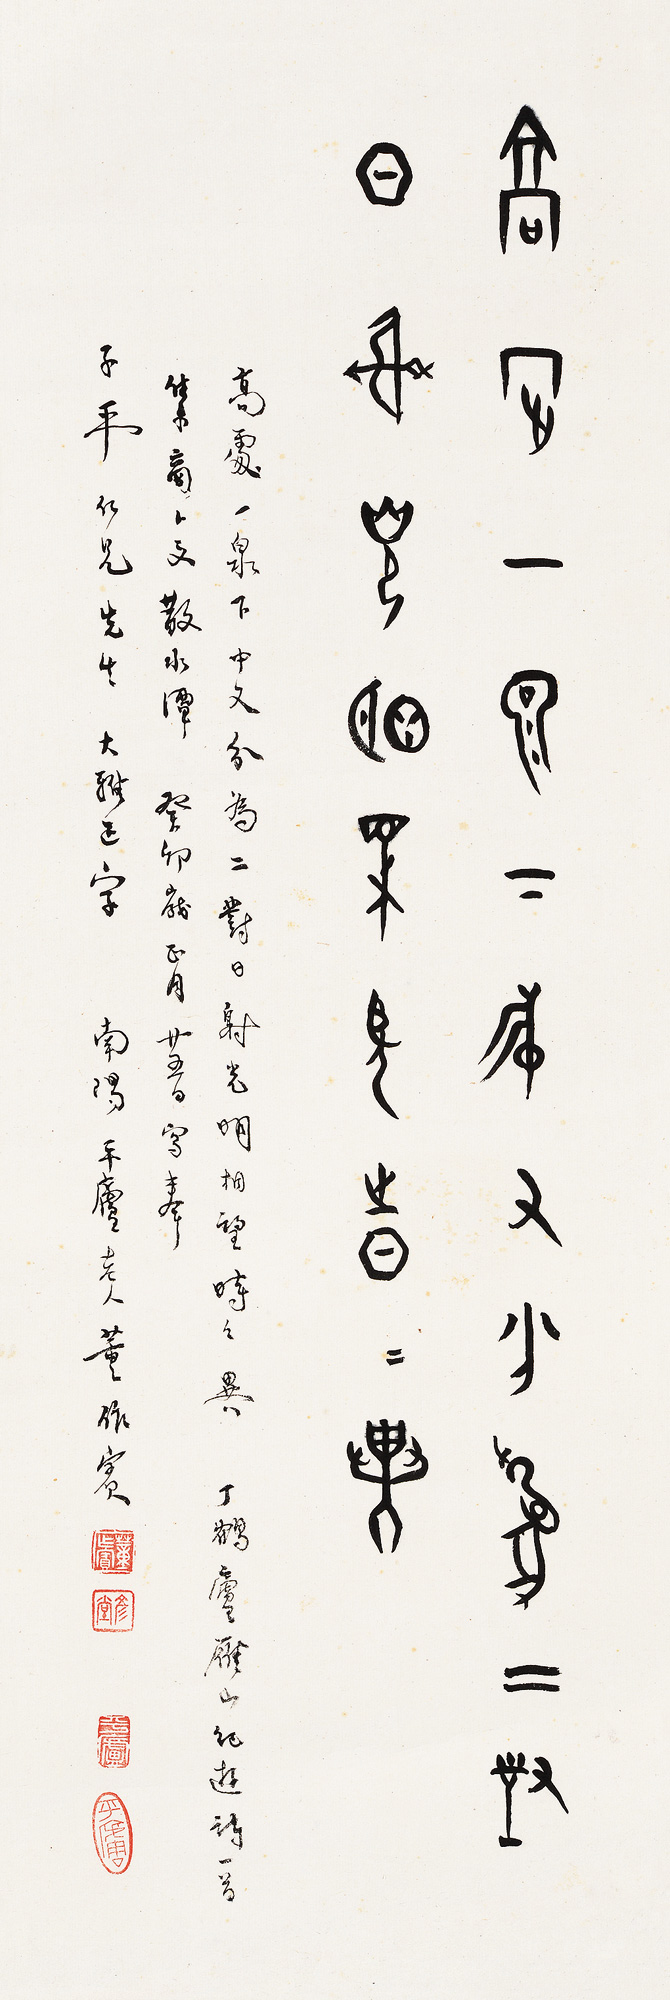 高處一泉下中又分為二對
日射光明相望時〻異
高處一泉下中又分為二對日射光明相望時々異 丁鶴廬雁山紀遊詩一首
集商卜文 散水潭 癸卯歲正月廿五日寫奉
子平仁兄先生大雅正字 南陽平廬老人董作賓
董作賓
彥堂
平廬